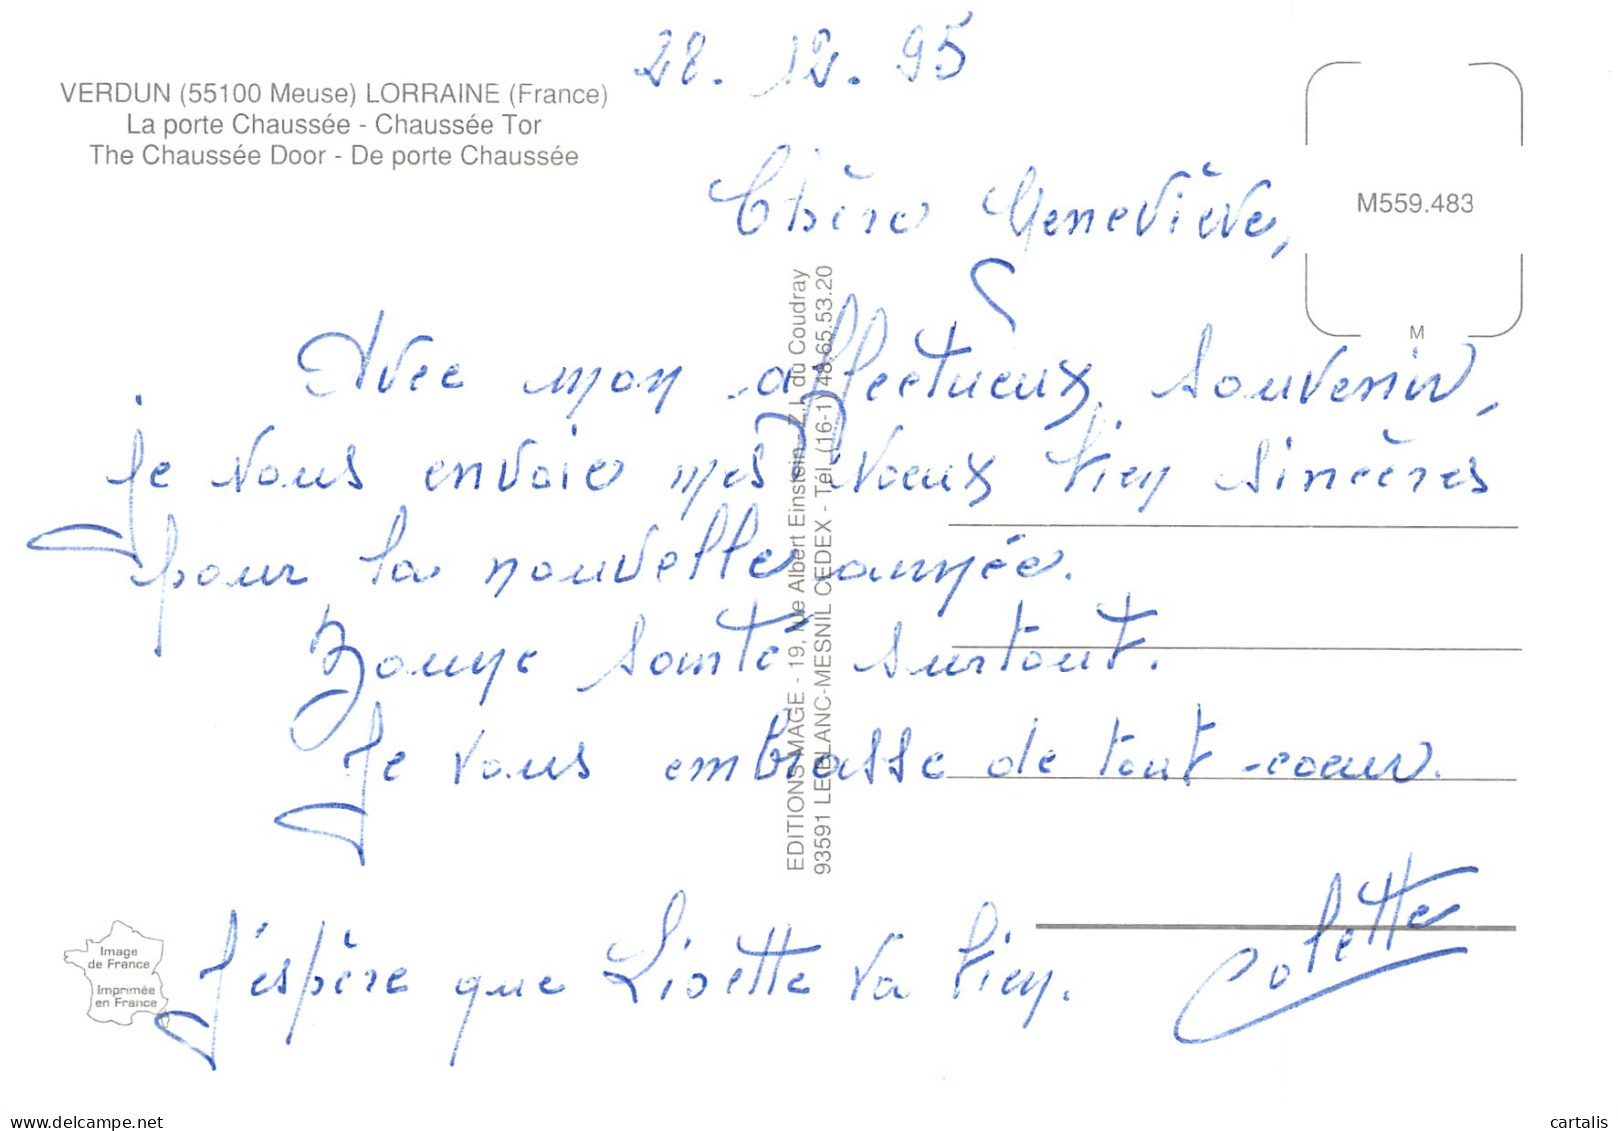 28.12.95
VERDUN (55100 Meuse) LORRAINE (France)
La porte Chaussée - Chaussée Tor
The Chaussée Door - De porte Chaussée
M559.483
M
Chère Geneviève,
Avec mon affectueux souvenir,
je vous envoie mes voeux bien sincères
pour la nouvelle année.
Bonne santé surtout.
Je vous embrasse de tout coeur.
Colette
J'espère que Lisette va bien.
EDITIONS MAGE - 19, rue Albert Einstein - Z.I. du Coudray
93591 LE BLANC-MESNIL CEDEX - Tél. (16-1) 48.65.53.20
Image
de France
Imprimée
en France
delcampe.net
cartalis